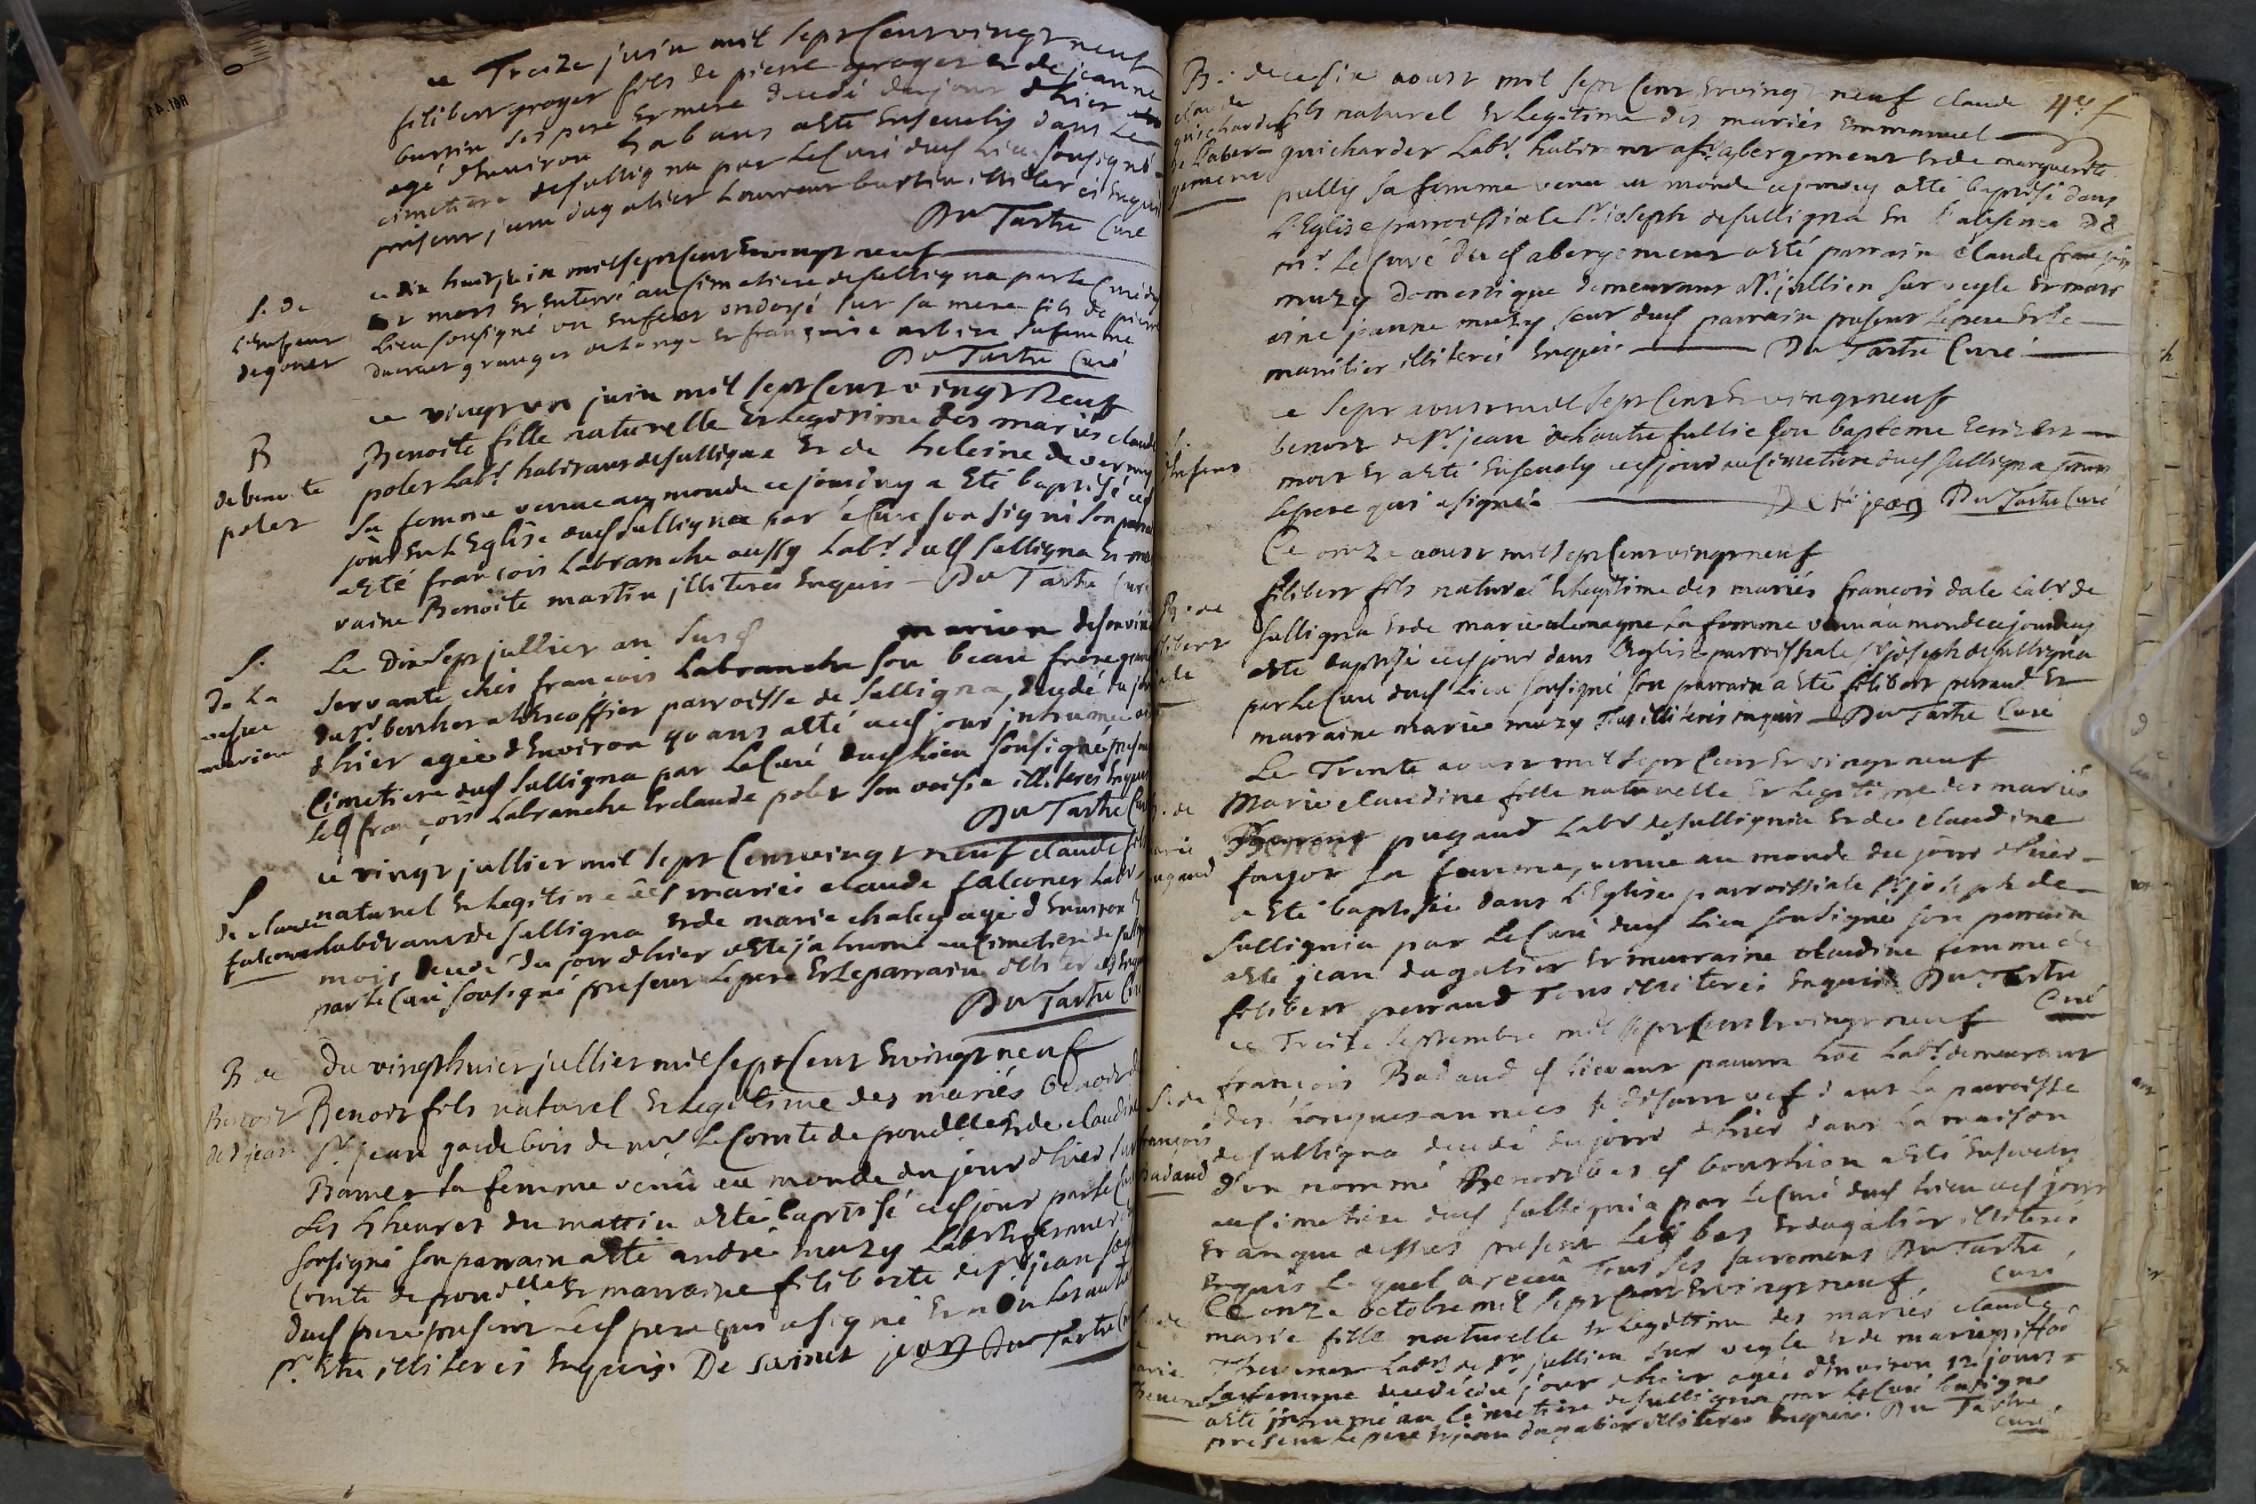 ce Treize juin mil sept Cent vingt neuf
filibert groger fils de pierre groger et de jeanne
burtin ses pere et mere decedé du jour d'hier
agé d'environ ans a Eté Ensevely dans Le
cimetiere de sulligna par Le Curé dud Lieu sousigné
présent jean dugalier Laurent burtin illiterés Enquis
Du Tartre Curé
S. de
L'enfant
de goner
ce dix huit juin mil sept Cent Et vingt neuf
est mort Et Enterré au Cimetiere de sulligna par le Curé du
Lieu sousigné un Enfant ondoyé sur sa mere fils de pierre
granger et françoise sa femme
Du Tartre Curé
B
de benoite
polet
ce vingt un juin mil sept Cent vingt Neuf
Benoite fille naturelle Et legitime des mariés claude
polet Labr. habitant de sulligna Et de heleine de
sa femme venue au monde ce jourduy a Eté baptisé ced
jour En L'Eglise dud sulligna par Le Curé sousigné son parrain
a Eté françois Labranche aussy Labr. dud sulligna Et mar
raine Benoite martin illiterés Enquis Du Tartre Curé
S.
de La
vefve
marion
Le Dix sept jullier an susd
marion
servante chés françois Labranche son beau frere
du Sr. parroisse de sulligna, decedé du jour
d'hier agée d'Environ 40 ans a Eté ced jour inhumée au
Cimetiere dud sulligna par Le Curé dud Lieu sousigné present
led françois Labranche Et claude polet son voisin illiterés Enquis
Du Tartre Curé
S
de claude
falconet
ce vingt jullier mil sept Cent vingt neuf claude fils
naturel Et legitime des mariés claude falconet Labr.
habitant de sulligna Et de marie chaley agé d'Environ
mois decedé du jour d'hier a Eté inhumé au Cimetiere de sulligna
par le Curé sousigné present Le pere Et Le parrain illiterés Enquis
Du Tartre Curé
B de
Benoit
de St jean
Du vingt huict jullier mil sept Cent Et vingt neuf
Benoit fils naturel Et legitime des mariés benoit de
St. jean garde bois de mr. Le Comte de Et de claudine
sa femme venû au monde du jour d'hier sur
Les 4 heures du mattin a Eté baptisé ced jour par le Curé
sousigné son parrain a Eté andré muzy Labr. fermier du
Comte de Et marraine filiberte de St. jean soeur
dud pere present led pere qui a signé Et non Les autres
pr. Etre illiterés Enquis. De sainct jean Du Tartre Curé
4e f
B. de
claude
guichardet
de L'aber-
gement
ce six aoust mil sept Cent Et vingt neuf claude
fils naturel Et legitime des mariés Emmanuel
guichardet Labr. habitant abergement Et de marguerite
pully sa femme venu au monde ce jourduy a Eté baptisé dans
L'Eglise parroissiale St. joseph de sulligna En L'absence de
mr. Le Curé dud abergement a Eté parrain claude françois
muzy domestique demeurant a St. jullien sur veyle Et marr
aine jeanne muzy soeur dud parrain present Le pere Et Le
marillier illiterés Enquis Du Tartre Curé
L'enfant
ce sept aoust mil sept Cent Et vingt neuf
benoit de St. jean de L'autre son bapteme Ecrit Est
mort Et a Eté Ensevely ced jour au Cimetiere dud sulligna
Le pere qui a signé De St jean Du Tartre Curé
B. de
filibert
dale
Ce onze aoust mil sept Cent vingt neuf
filibert fils naturel Et legitime des mariés françois dale Labr. de
sulligna Et de marie alemagne sa femme venu au monde ce jourduy
a Eté baptisé ced jour dans L'Eglise parroissiale St. joseph de sulligna
par Le Curé dud Lieu sousigné son parrain a Eté filibert perraud Et
marraine marie muzy Tous illiterés Enquis Du Tartre Curé
B. de
marie
pugaud
Le Trente aoust mil sept Cent Et vingt neuf
Marie claudine fille naturelle Et legitime des mariés
Benoit pugaud Labr. de sullignia Et de claudine
fayot sa femme, venue au monde du jour d'hier
a Eté baptisée dans L'Eglise parroissiale St. joseph de
sullignia par Le Curé dud Lieu sousigné son parrain
a Eté jean dugalier Et marraine claudine femme de
filibert perraud Tous illiterés Enquis Du Tartre
Curé
S. de
françois
Badaud
ce Treize septembre mil sept Cent Et vingt neuf
françois Badaud pauvre Labr. demeurant
des Longues années dans La parroisse
de sulligna decedé du jour d'hier dans La maison
d'un nommé Benoit bourhion a Eté Ensevely
au Cimetiere dud sullignia par Le Curé dud Lieu ced jour
Et an que dessus present Led Et dugalier illiterés
Enquis Le quel a receû Tous ses sacremens Du Tartre
Curé
Ce onze octobre mil sept Cent Et vingt neuf
marie fille naturelle Et legitime des mariés claude
Thevenet Labr. de St. jullien sur veyle Et de marie
sa femme decedée du jour d'hier agée d'Environ 12 jours
a Eté inhumé au Cimetiere de sulligna par Le Curé sousigné
present Le pere Et jean dugalier illiterés Enquis. Du Tartre
Curé